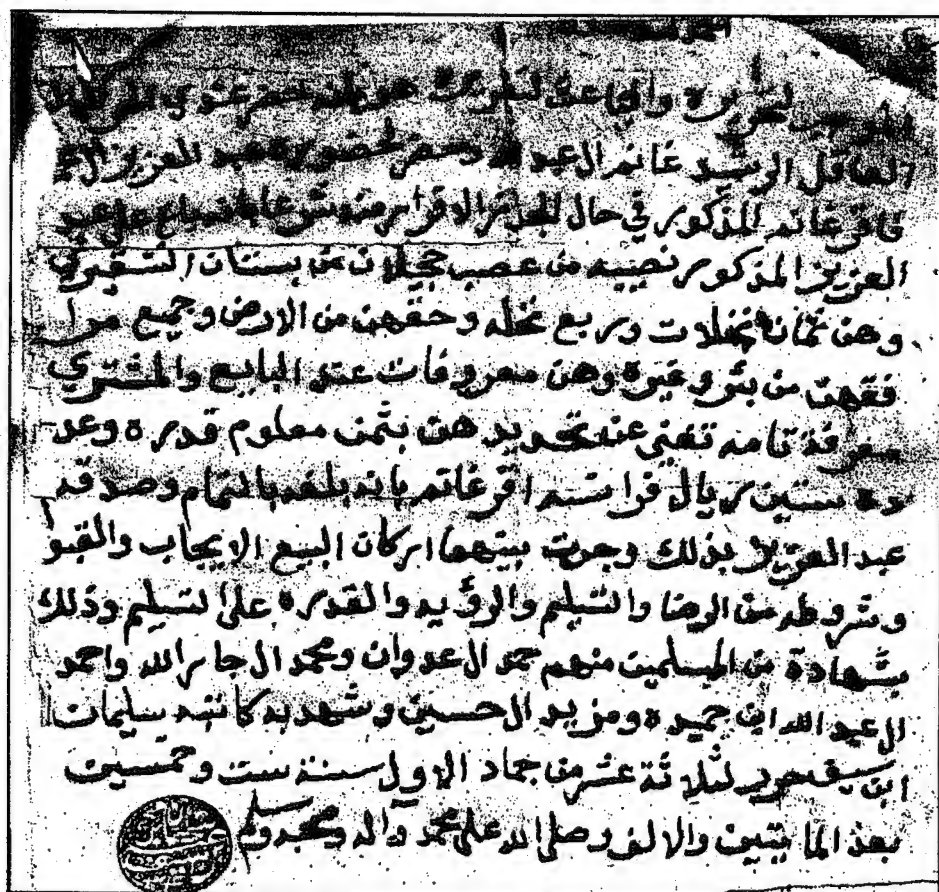 الحمد لله
الموجب لتحريره والباعث لتسطيره هو بانه حضر عندي الرجل
العاقل الرشيد غانم ال عبد الله وحضر لحضوره عبد العزيز ال
فاقر غانم المذكور في حال الجايز الاقرار منه شرعا بانه باع على عبد
العزيز المذكور نصيبه من عصب حجيلان من بستان الشقيري
وهن ثمان نخلات وربع نخله وحقهن من الارض وجميع مرا
فقهن من بئر وغيره وهن معروفات عند البايع والمشتري
معرفة تامه تغني عن تحديد هن بثمن معلوم قدره وعد
ده ستين ريال فرانسه اقر غانم بانه بلغه بالتمام وصدقه
عبد العزيز بذلك وجرت بينهما اركان البيع الايجاب والقبو
وشروطه من الرضا والتسليم والرؤيه والقدره على التسليم وذلك
بشهادة من المسلمين منهم حمد ال عدوان ومحمد ال جار الله واحمد
ال عبد الله ابن حميده ومزيد ال حسين وشهد به كاتبه سليمان
ابن سيف حرر لثلاثة عشر من جماد الاول سنة ست وخمسين
بعد المايتين والالف وصلى الله على محمد واله وصحبه وسلم